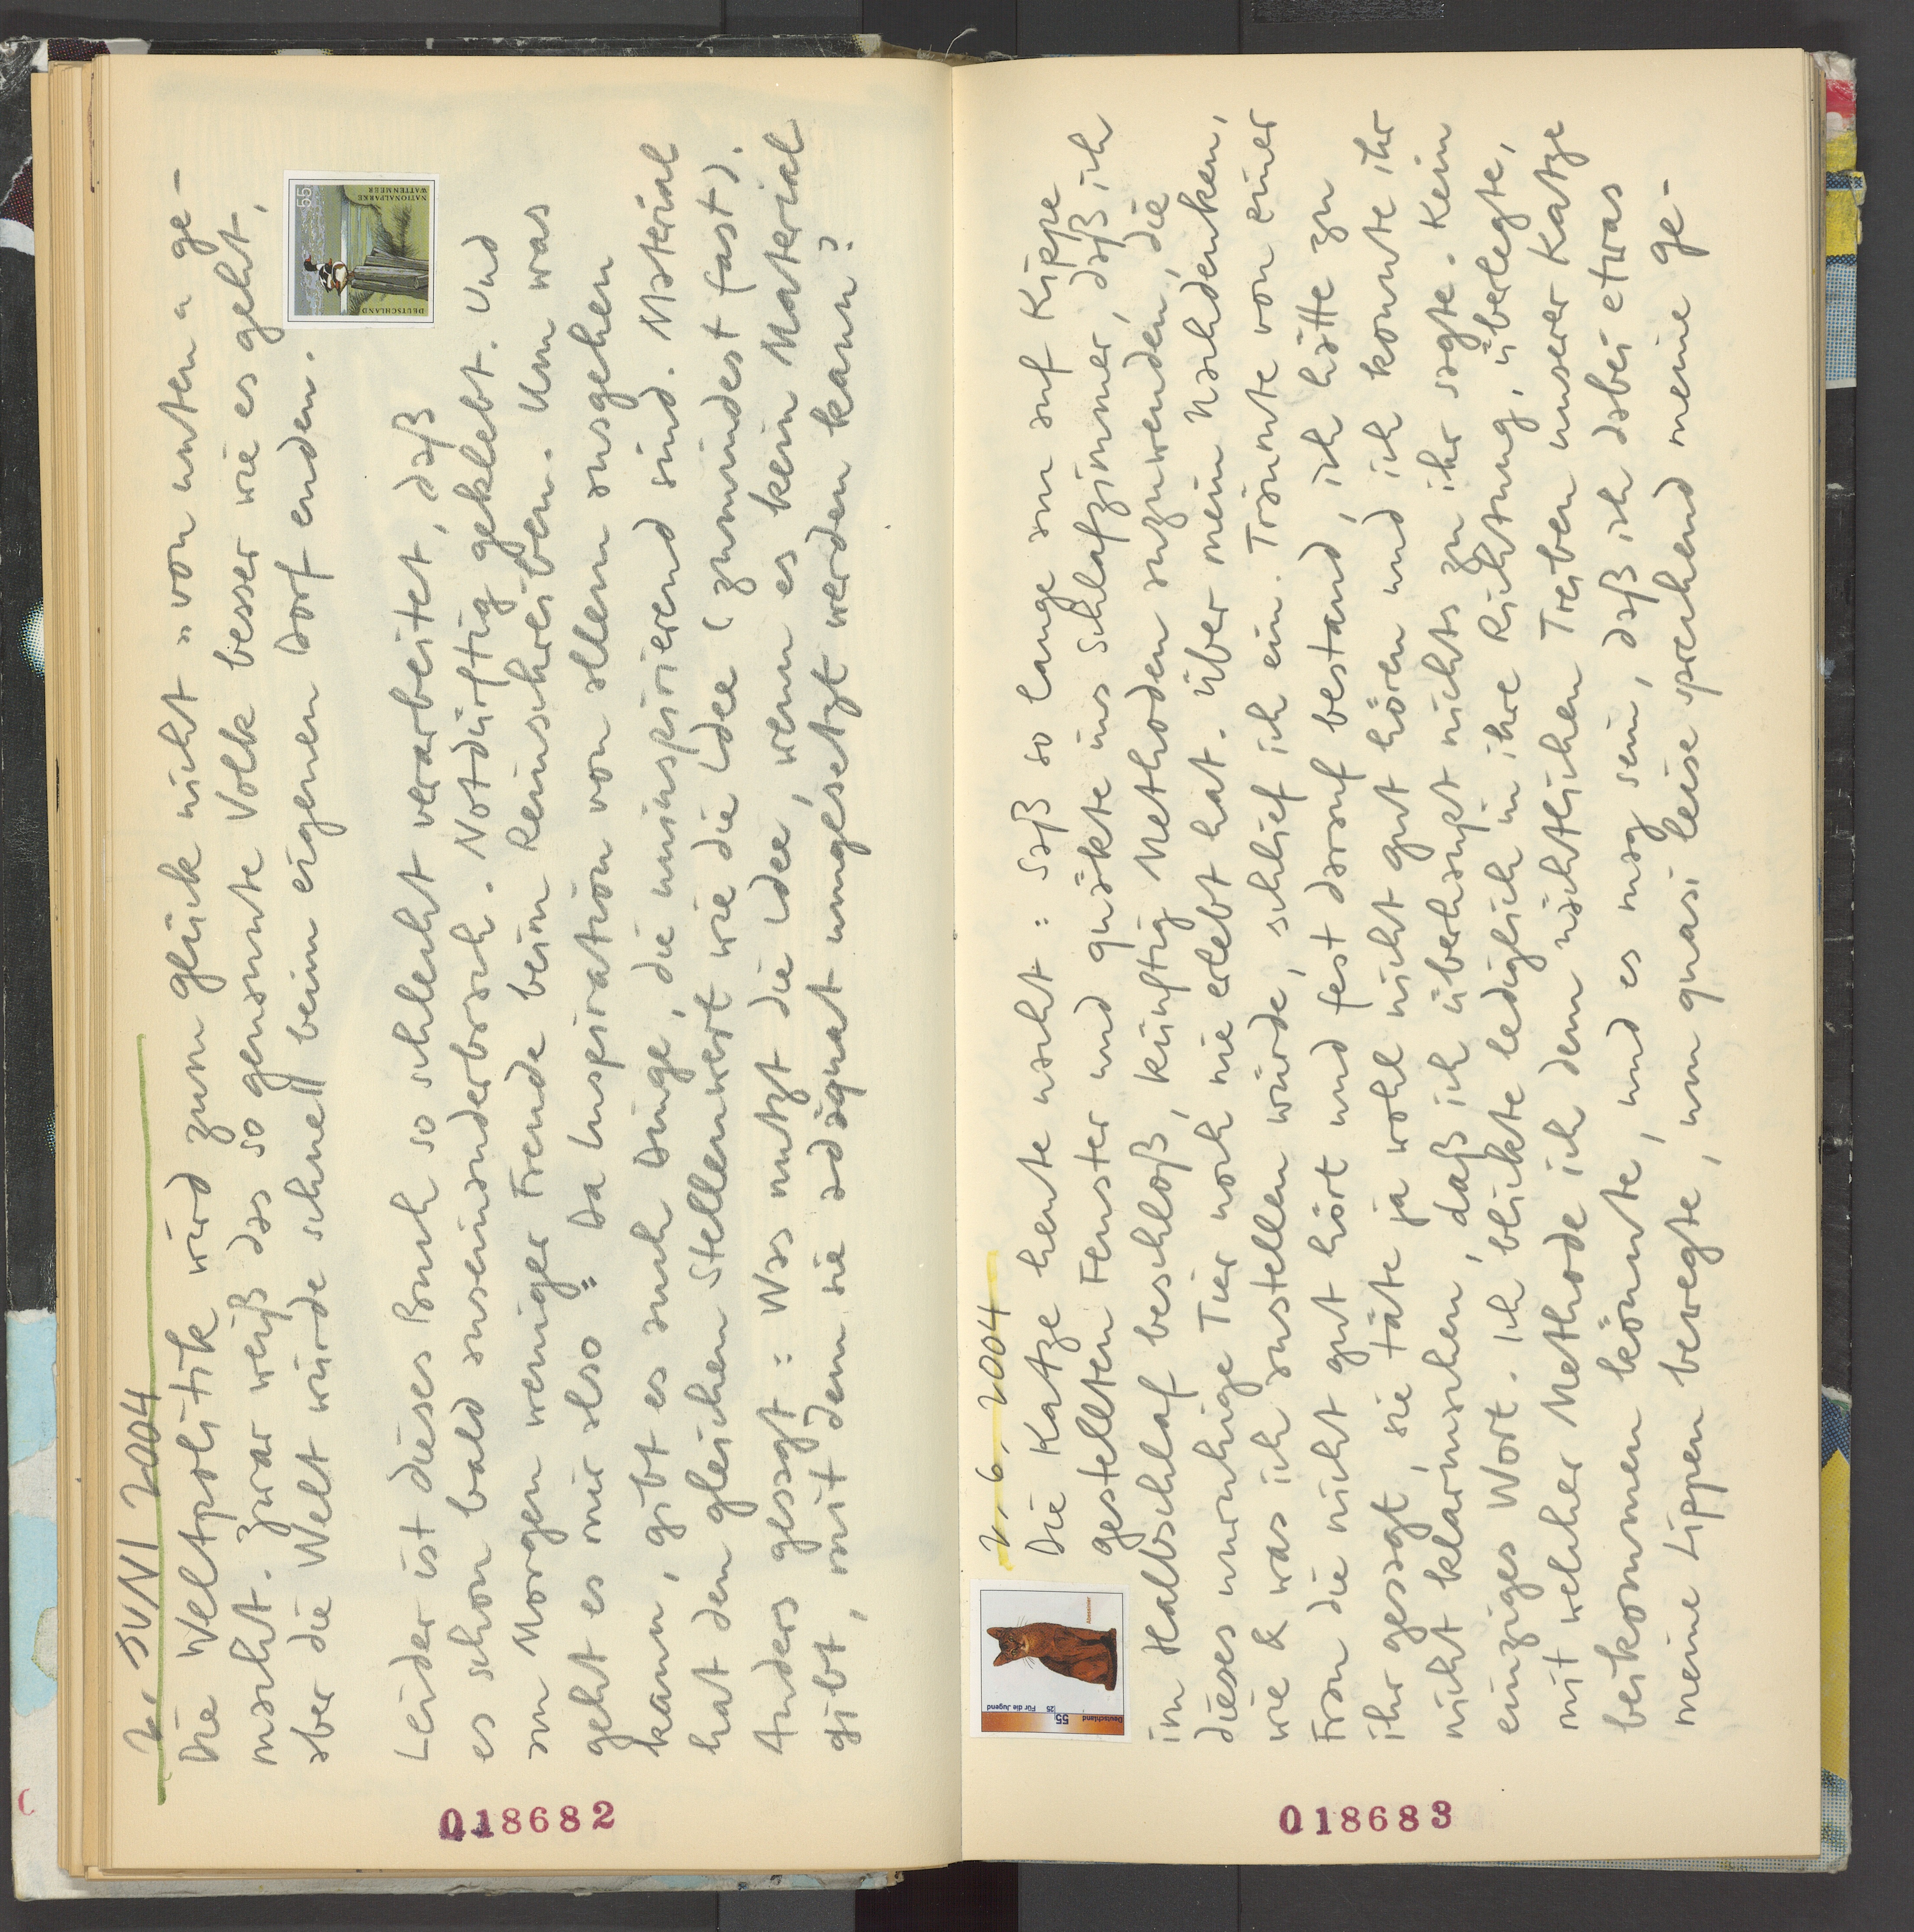 2. JUNI 2004
Die Weltpolitik wird zum Glück nicht "von unten" ge-
macht. Zwar weiß das so genannte Volk besser wie es geht,
aber die Welt würde schnell beim eigenen Dorf enden.
NATIONALPARKE
WATTENMEER
55
DEUTSCHLAND
Leider ist dieses Buch so schlecht verarbeitet, daß
es schon bald auseinanderbrach. Notdürftig geklebt. Und
am Morgen weniger Freude beim Reinschreiben. Um was
geht es mir also? Da Inspiration von allem ausgehen
kann, gibt es auch Dinge, die uninspirierend sind. Material
hat den gleichen Stellenwert wie die Idee (zumindest fast).
Anders gesagt: Was nutzt die Idee, wenn es kein Material
gibt, mit dem sie adäquat umgesetzt werden kann?
018682
2. 6. 2004
Die Katze heute nacht: saß so lange am auf Kippe
gestellten Fenster und quäkte ins Schlafzimmer, daß ich
im Halbschlaf beschloß, künftig Methoden anzuwenden, die
dieses unruhige Tier noch nie erlebt hat. Über mein Nachdenken,
wie & was ich anstellen würde, schlief ich ein. Träumte von einer
Frau die nicht gut hört und fest darauf bestand, ich hätte zu
ihr gesagt, sie täte ja wohl nicht gut hören und ich konnte ihr
nicht klarmachen, daß ich überhaupt nichts zu ihr sagte. Kein
einziges Wort. Ich blickte lediglich in ihre Richtung, überlegte,
mit welcher Methode ich dem nächtlichen Treiben unserer Katze
beikommen könnte, und es mag sein, daß ich dabei etwas
meine Lippen bewegte, um quasi leise sprechend meine ge-
Deutschland
55
25
Für die Jugend
018683